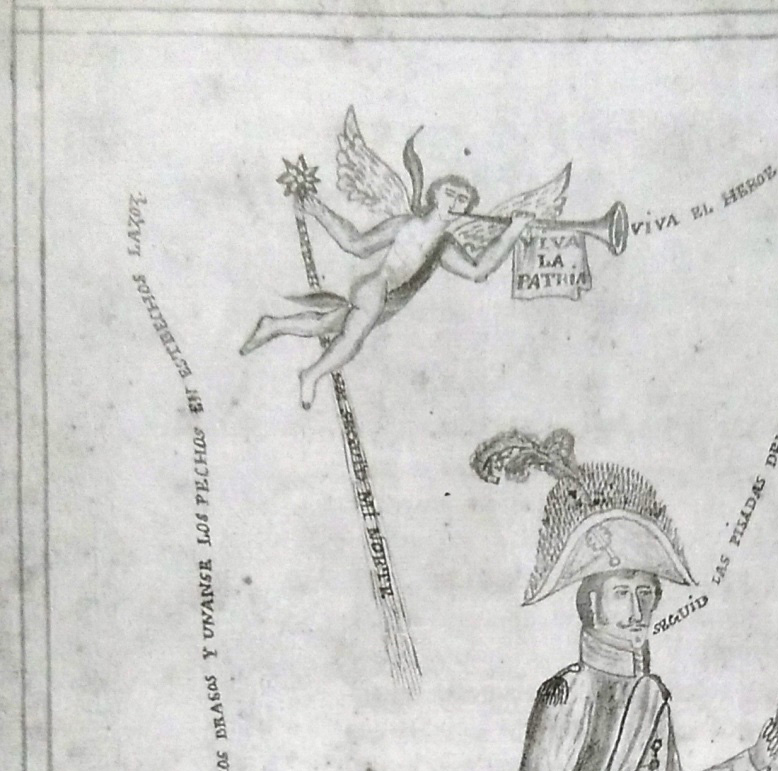 VIVA EL HEROE
VIVA
LA
PATRIA
BRASOS Y UNANSE LOS PECHOS EN ESTRECHOS LAXOZ.
MI NORTE
SEGUID LAS PISADAS DE